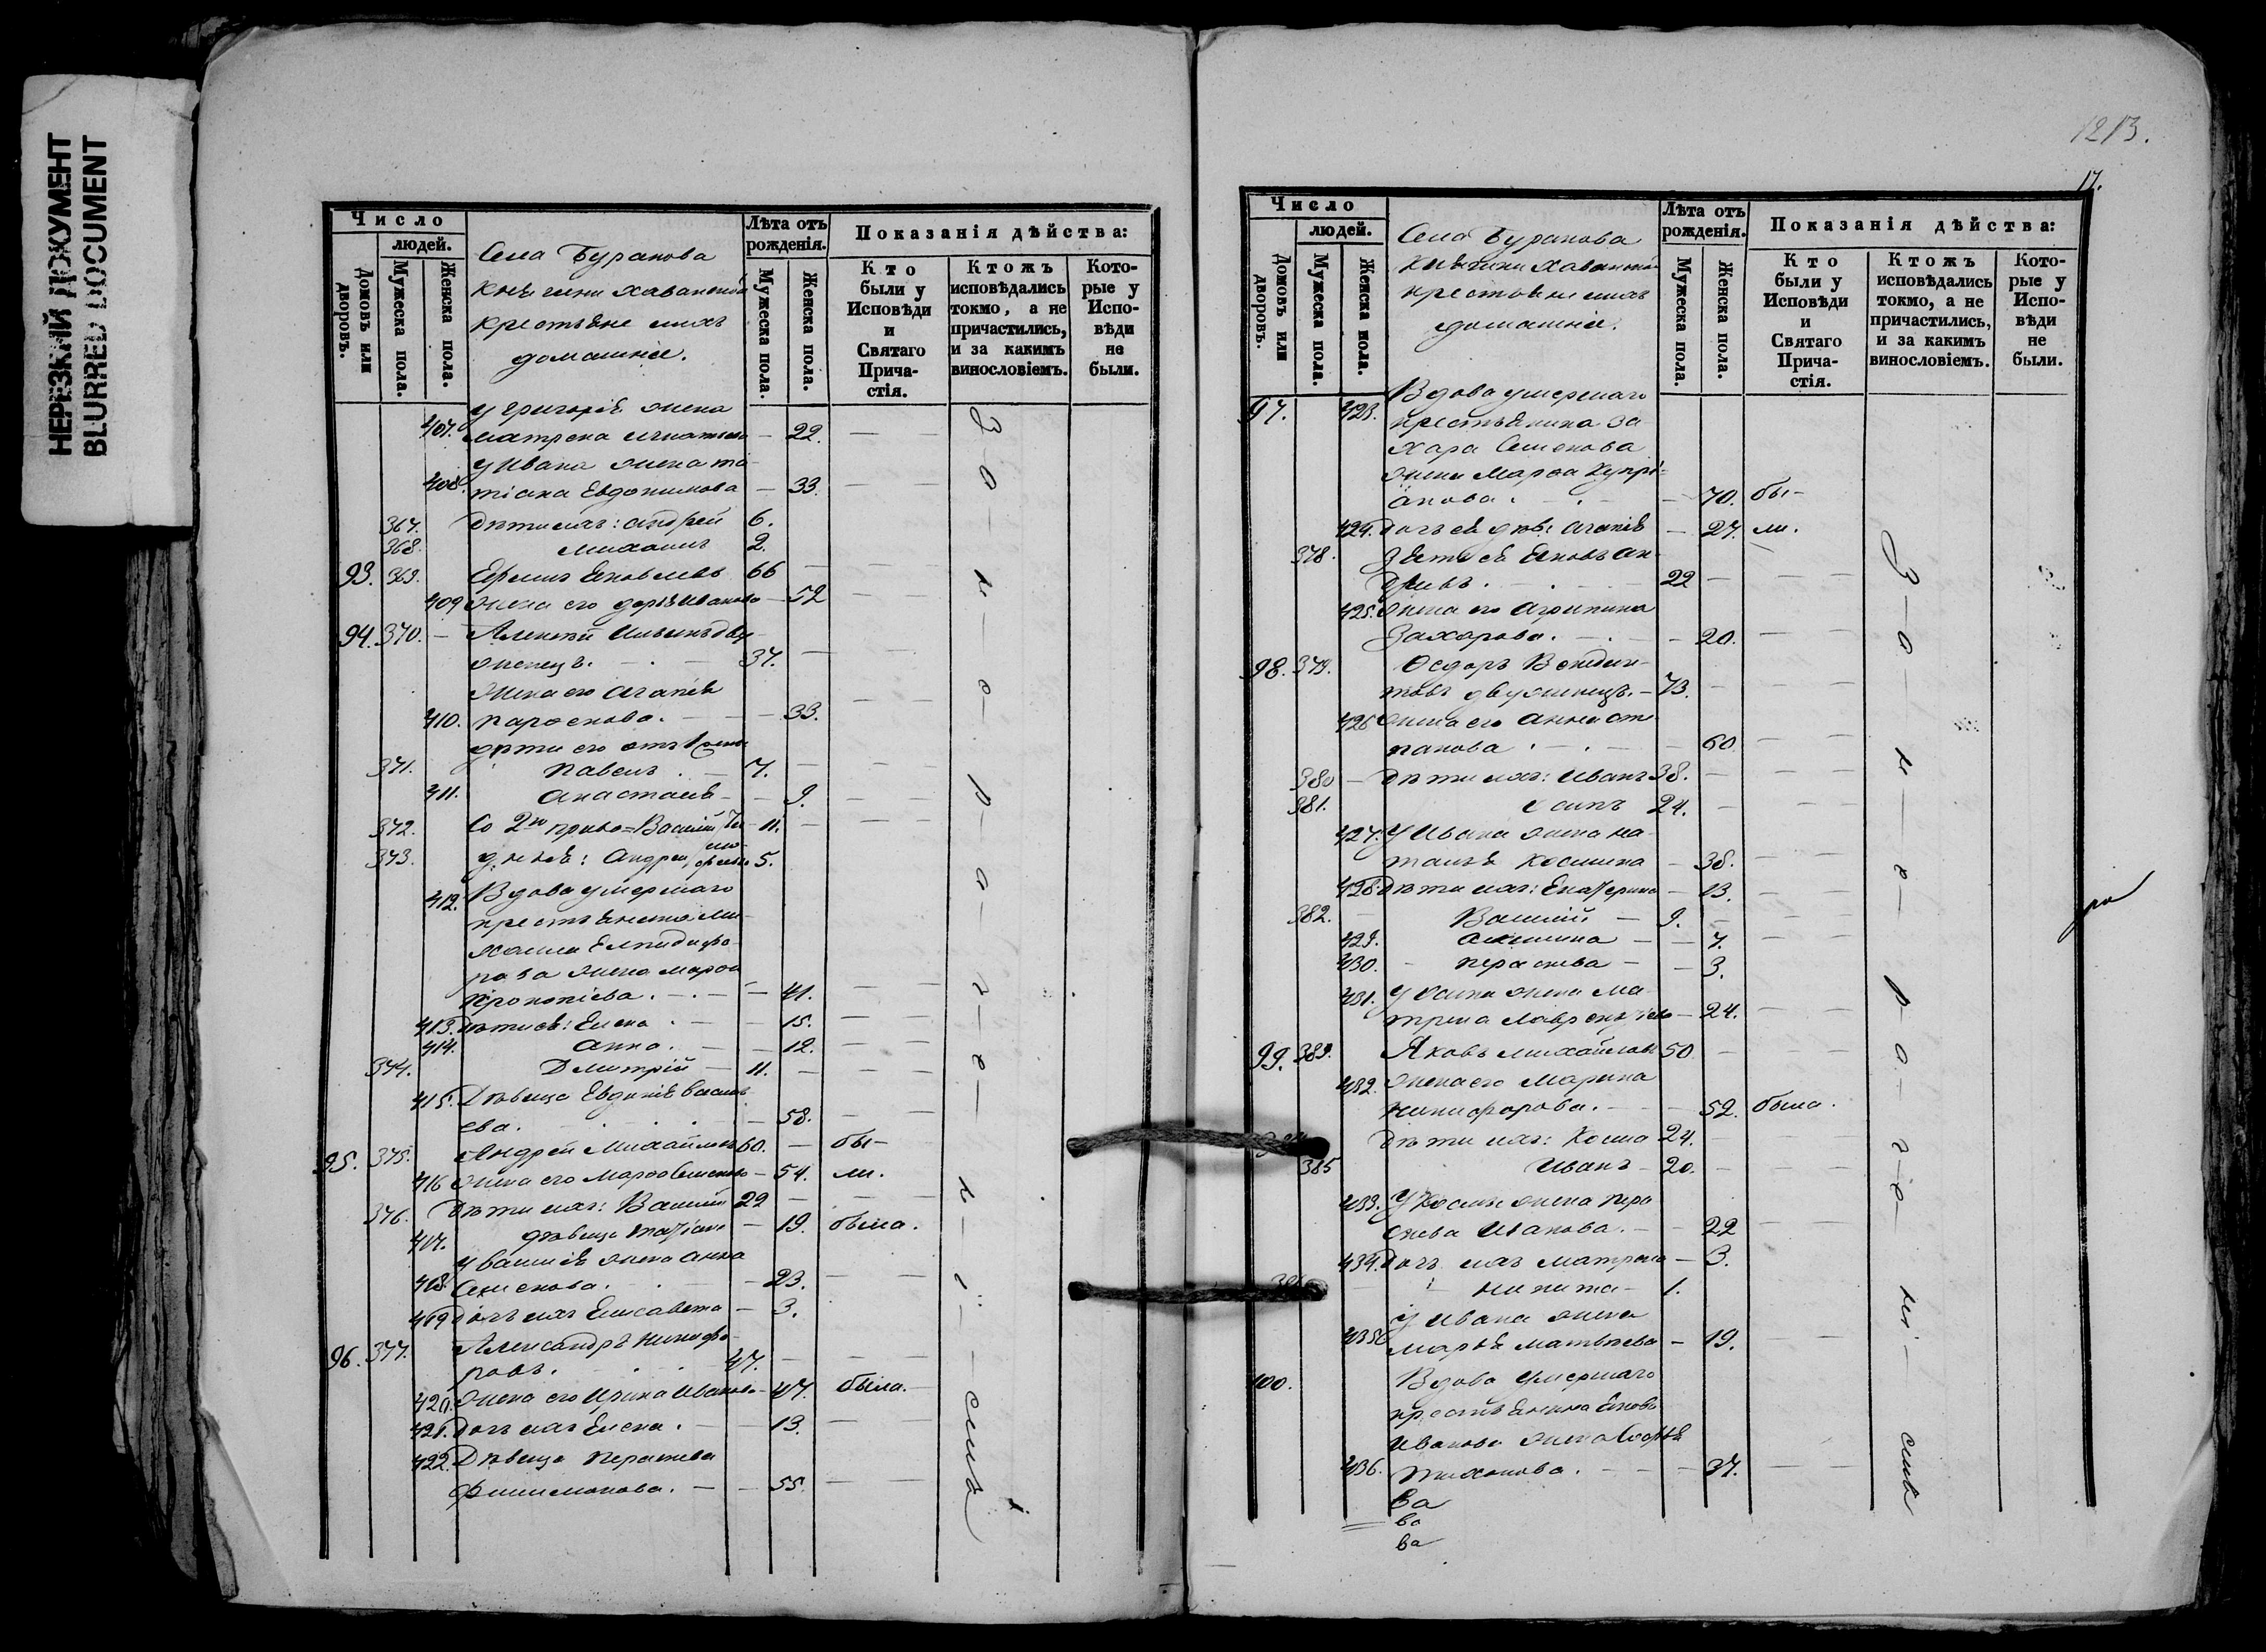 НЕРЕЗКИЙ ДОКУМЕНТ
BLURRED DOCUMENT
Число
людей.
Домовъ или дворовъ.
Мужеска пола.
Женска пола.
Села Буранова
крестьяне ихъ
домашніе.
Лѣта отъ рожденія.
Мужеска пола.
Женска пола.
Показанія дѣйства:
Кто были у Исповѣди и Святаго Прича-стія.
Ктожъ исповѣдались токмо, а не причастились, и за какимъ винословіемъ.
Кото-рые у Испо-вѣди не были.
У Григорія жена
407. Матрена Игнатьева — 22. — —
У Ивана жена Та-
408. тіана Евдокимова — 33. — —
367. Дѣти ихъ: Андрей 6.
368. Михаилъ 2.
93. 369. Ефимъ Яковлевъ 66 — —
409 жена его Дарья Иванова — 52 —
94. 370. — Алексѣй Ильинъ дву-
женецъ. — . — 37. —
Жена его Агапія
410. — — 33. — —
дѣти его отъ 1 жены
371. Павелъ . — 7. — — —
411. Анастасія — — 9. — —
372. Со 2ю Василій 11. — — —
373. Андрей, 5.
412. Вдова умершаго
крестьянина Ми-
хаила Елпидифо-
рова жена Марѳа
Прокопіева. — . — — 41. — —
413. Дѣти ея: Елена . — — 15. — —
414. Анна. — — 12. — —
374. Димитрій — 11. — — —
415. Дѣвица Евдокія Василь-
ева. — 58. — —
95. 375. Андрей Михайловъ 60. — бы-
416 жена его Марѳа Семенова — 54. ли.
376. Дѣти ихъ: Василій 22 — — —
417. дѣвица Татіана — 19. была.
У Василія жена Анна
418. Семенова. — 23. — —
419 Дочь ихъ Елисавета — 3.
96. 377. Александръ Никифо-
ровъ. 47. — — —
420. Жена его Ирина Иванова — 47. была.
421. Дочь ихъ Елена. — — 13. — —
422. Дѣвица Параскева
Филимонова. — — 55. — —
за не о ра че ні емъ
1213.
17.
Число
людей.
Домовъ или дворовъ.
Мужеска пола.
Женска пола.
Села Буранова
крестьяне ихъ
домашніе.
Лѣта отъ рожденія.
Мужеска пола.
Женска пола.
Показанія дѣйства:
Кто были у Исповѣди и Святаго Прича-стія.
Ктожъ исповѣдались токмо, а не причастились, и за какимъ винословіемъ.
Кото-рые у Испо-вѣди не были.
97. 423. Вдова умершаго
крестьянина За-
хара Семенова
жена Марѳа Купрі-
анова. — 70. бы-
424. Дочь ея дѣв. Агапія — 27. ли.
378. Зять ея Яковъ Ан-
дреевъ. 22 — — —
425. Жена его Агрипина
Захарова. — . — 20. — —
98. 379. Ѳедоръ
двуженецъ. — 73. — — —
426 Жена его Анна Сте-
панова . — . — — 60 — —
380 — Дѣти ихъ: Иванъ 38. — — —
381. 24. — — —
427. У Ивана жена На-
талья Косьмина — 38. — —
428. Дѣти ихъ: Екатерина — 13. — —
382. — Василій. — 9. —
429. Акилина — — 7. — —
430. — Параскева — — 3.
431. жена Ма-
трена Лаврентіева — 24. — —
99. 383. Яковъ Михайловъ 50. — — —
432. Жена его Марина
Никифорова. — — 52. была.
Дѣти ихъ: Косма 24. — — —
385 Иванъ — 20. — — —
433. У Космы жена Пара-
скева Иванова. — — 22 — —
434. Дочь ихъ Матрена — 3.
Никита — 1.
У Ивана жена
435. Марья Матвѣева — 19. — —
100. Вдова умершаго
крестьянина Якова
Иванова жена Софья
436. Тихонова. — — — 37. — —
ва
ва
ва
за не о ра че ні емъ